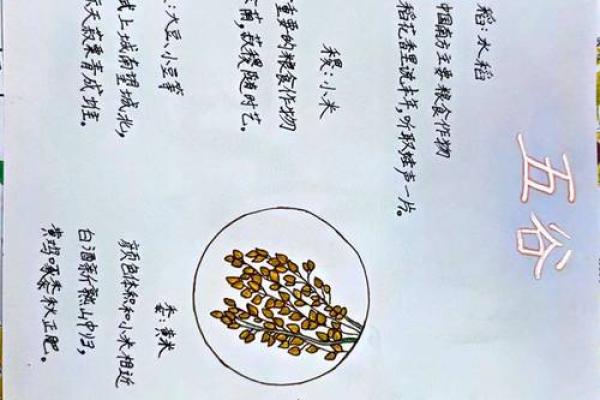 五谷
稻:水稻
中国南方主要粮食作物
稻花香里说丰年,听取蛙声一片。
稷:小米
重要的粮食作物
稷随时艺。
:大豆、小豆等
上城南望城北,
天菽粟青成堆。
黍:黄米
颜色体积和小米相近
白酒新熟山中归,
黄鸡啄黍秋正肥。